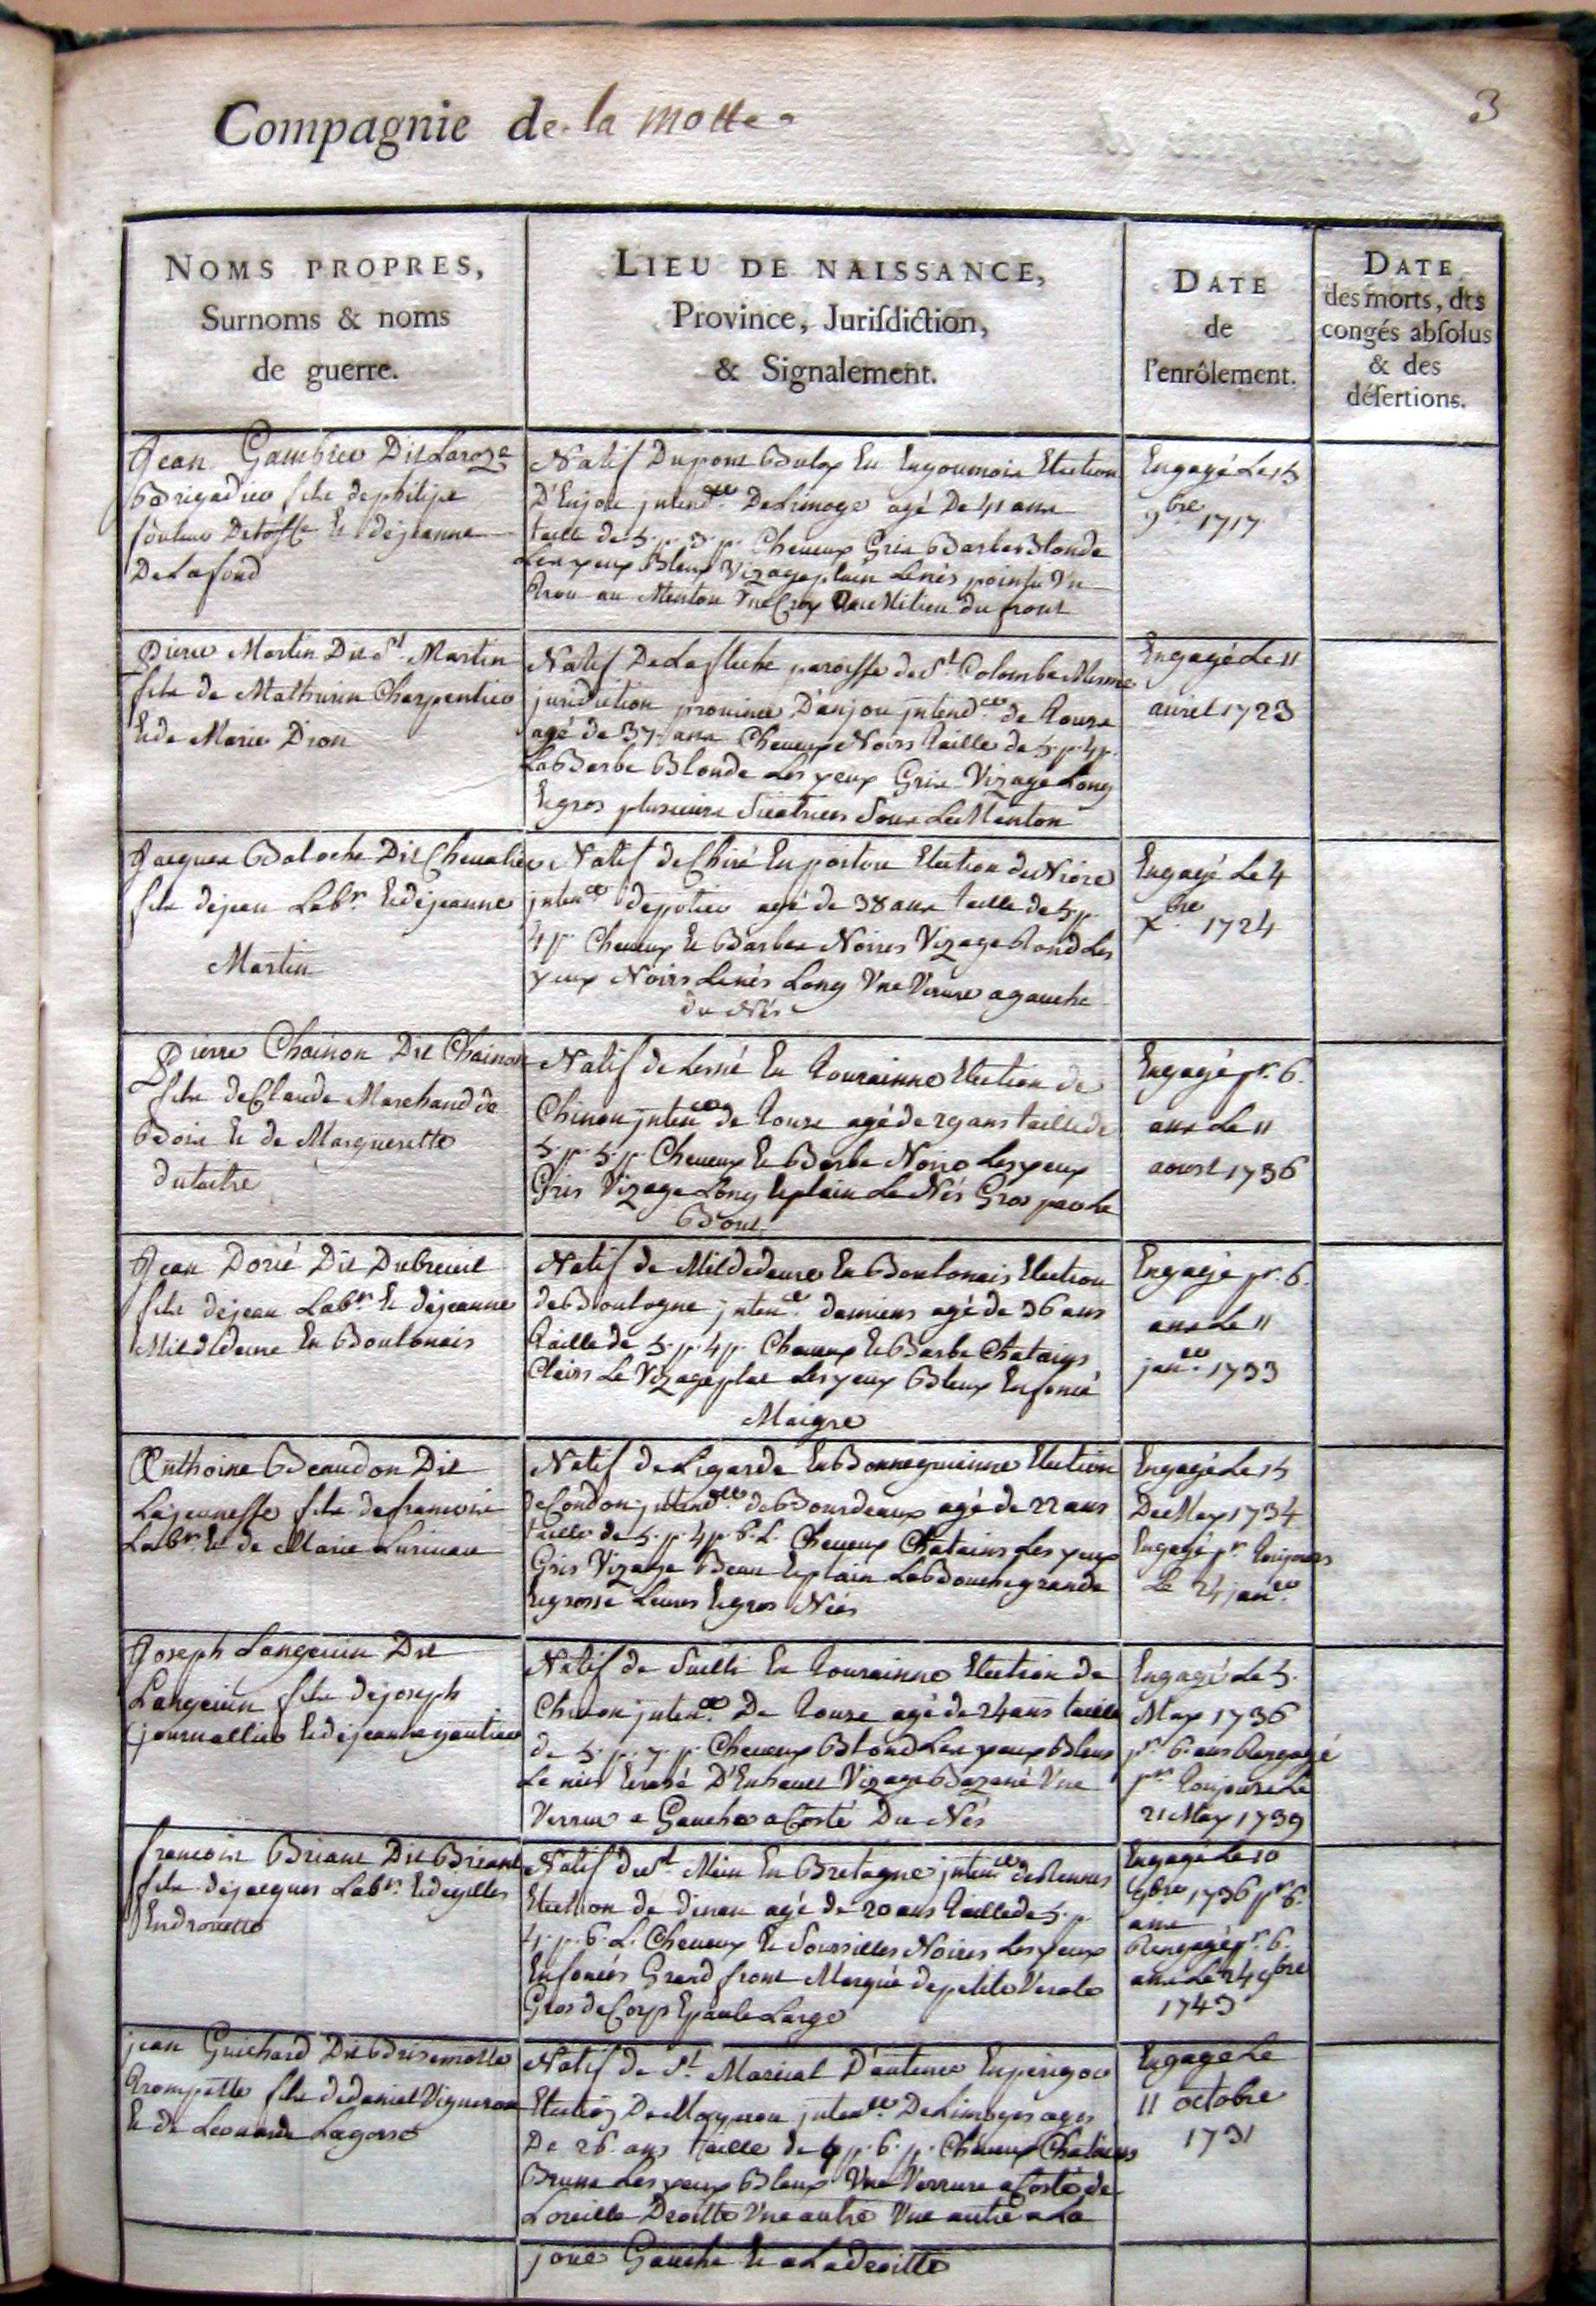 3
Compagnie de la motte
NOMS PROPRES,
Surnoms & noms
de guerre.
LIEU DE NAISSANCE,
Province, Jurisdiction,
& Signalement.
DATE
de
l'enrôlement.
DATE
des morts, des
congés absolus
& des
désertions.
Jean Gambier Dit Laroze
Brigadier fils de philipe
et dejeanne
DeLafond
Natif Dupont En Engoumois Election
D'Enjou intend.ce DeLimoge agé De 41 ans
taille de 5. p. 3. p. Cheueux Gris Barbe Blonde
Les yeux Bleux Vizage plain Le nés pointu Vn
trou au Menton Vne Milieu du front
Engagé Le 15
9bre 1717
Pierre Martin Dit St. Martin
fils de Mathurin Charpentier
et de Marie Dion
Natif DeLa fleche paroisse de St. Colombe Mesme
juridiction prouince D'anjou intend.ce de tours
agé de 37. ans Cheueux Noirs taille de 5. p. 4 p.
La Barbe Blonde Les yeux Gris Vizage Long
et gros plusieurs Sicatrices Sous Le Menton
Engagé Le 11
auril 1723
Jacques Baloche Dit Cheualier
fils dejean Labr. et dejeanne
Martin
Natif de Chiré En poitou Election de Niore
inten.ce depotier agé de 38 ans taille de 5. p.
4 p. Cheueux et Barbes Noires Vizage Rond Les
yeux Noirs Le nés Long Vne Verure a gauche
du Nés
Engagé Le 4
xbre 1724
Pierre Chainon Dit Chainon
fils de Claude Marchand de
Bois et de Marguerette
dutertre
Natif de Lerné En tourainne Election de
Chinon inten.ce de tours agé de 29 ans taille de
5. p. 5. p. Cheueux et Barbe Noire Les yeux
Gris Vizage Long et plain Le Nés Gros par Le
Bout
Engagé pr. 6.
ans Le 11
aoust 1736
Jean Dorié Dit Dubreuil
fils dejean Labr. et dejeanne
En Boulonais
Natif de En Boulonais Election
de Boulogne inten.ce damiens agé de 36 ans
taille de 5. p. 4 p. Cheueux et Barbe Chatains
Clairs Le Vizage plat Les yeux Bleux Enfoncé
Maigre
Engagé pr. 6.
ans Le 11
jan.er 1733
Anthoine Beaudon Dit
Lajeunesse fils de francois
Labr. et de Marie
Natif de Ligarde Election
de Condon intend.ce de Bourdeaux agé de 22 ans
taille de 5. p. 4 p. 6. L. Cheueux Chatains Les yeux
Gris Vizage Beau et plain La Bouche grande
et grosse Leures et gros Nés
Engagé Le 15
De May 1734
Engagé pr. toujours
Le 24 jan.er
Joseph Langeuin Dit
Langeuin fils dejoseph
journallier et dejeanne gautier
Natif de Suilli En tourainne Election de
Chinon inten.ce De tours agé de 24 ans taille
de 5. p. 7. p. Cheueux Blond Les yeux Bleus
Le nés D'Enhault Vizage Bazané Vne
Verrue a Gauche a Costé Du Nés
Engagé Le 5.
May 1736
pr. 6. ans Rengagé
pr. toujours Le
21 May 1739
francois Briant Dit Briant
fils dejacques Labr. et degilles
Natif de St. Mein En Bretagne inten.ce de Rennes
Election de dinan agé de 20 ans taille de 5. p.
4. p. 6. L. Cheueux et Soursilles Noires Les yeux
Enfoncés Grand front Marqué de petite Verole
Gros de Corps Epaule Large
Engagé Le 10
9bre 1736 pr. 6.
ans
Rengagé pr. 6.
ans Le 24 9bre
1743
jean Guichard Dit Brisemotte
trompette fils dedaniel Vigneron
et de Leonarde
Natif de St. Marcial D'auteuue Enperigor
Election intend.ce De Limoges agés
De 26. ans taille de p. 6. p. Cheueux Chatains
Bruns Les yeux Bleux Vne Verrure a Costé de
Loreille Droitte Vne autre Vne autre a La
joue Gauche et a La droitte
Engagé Le
11 octobre
1731